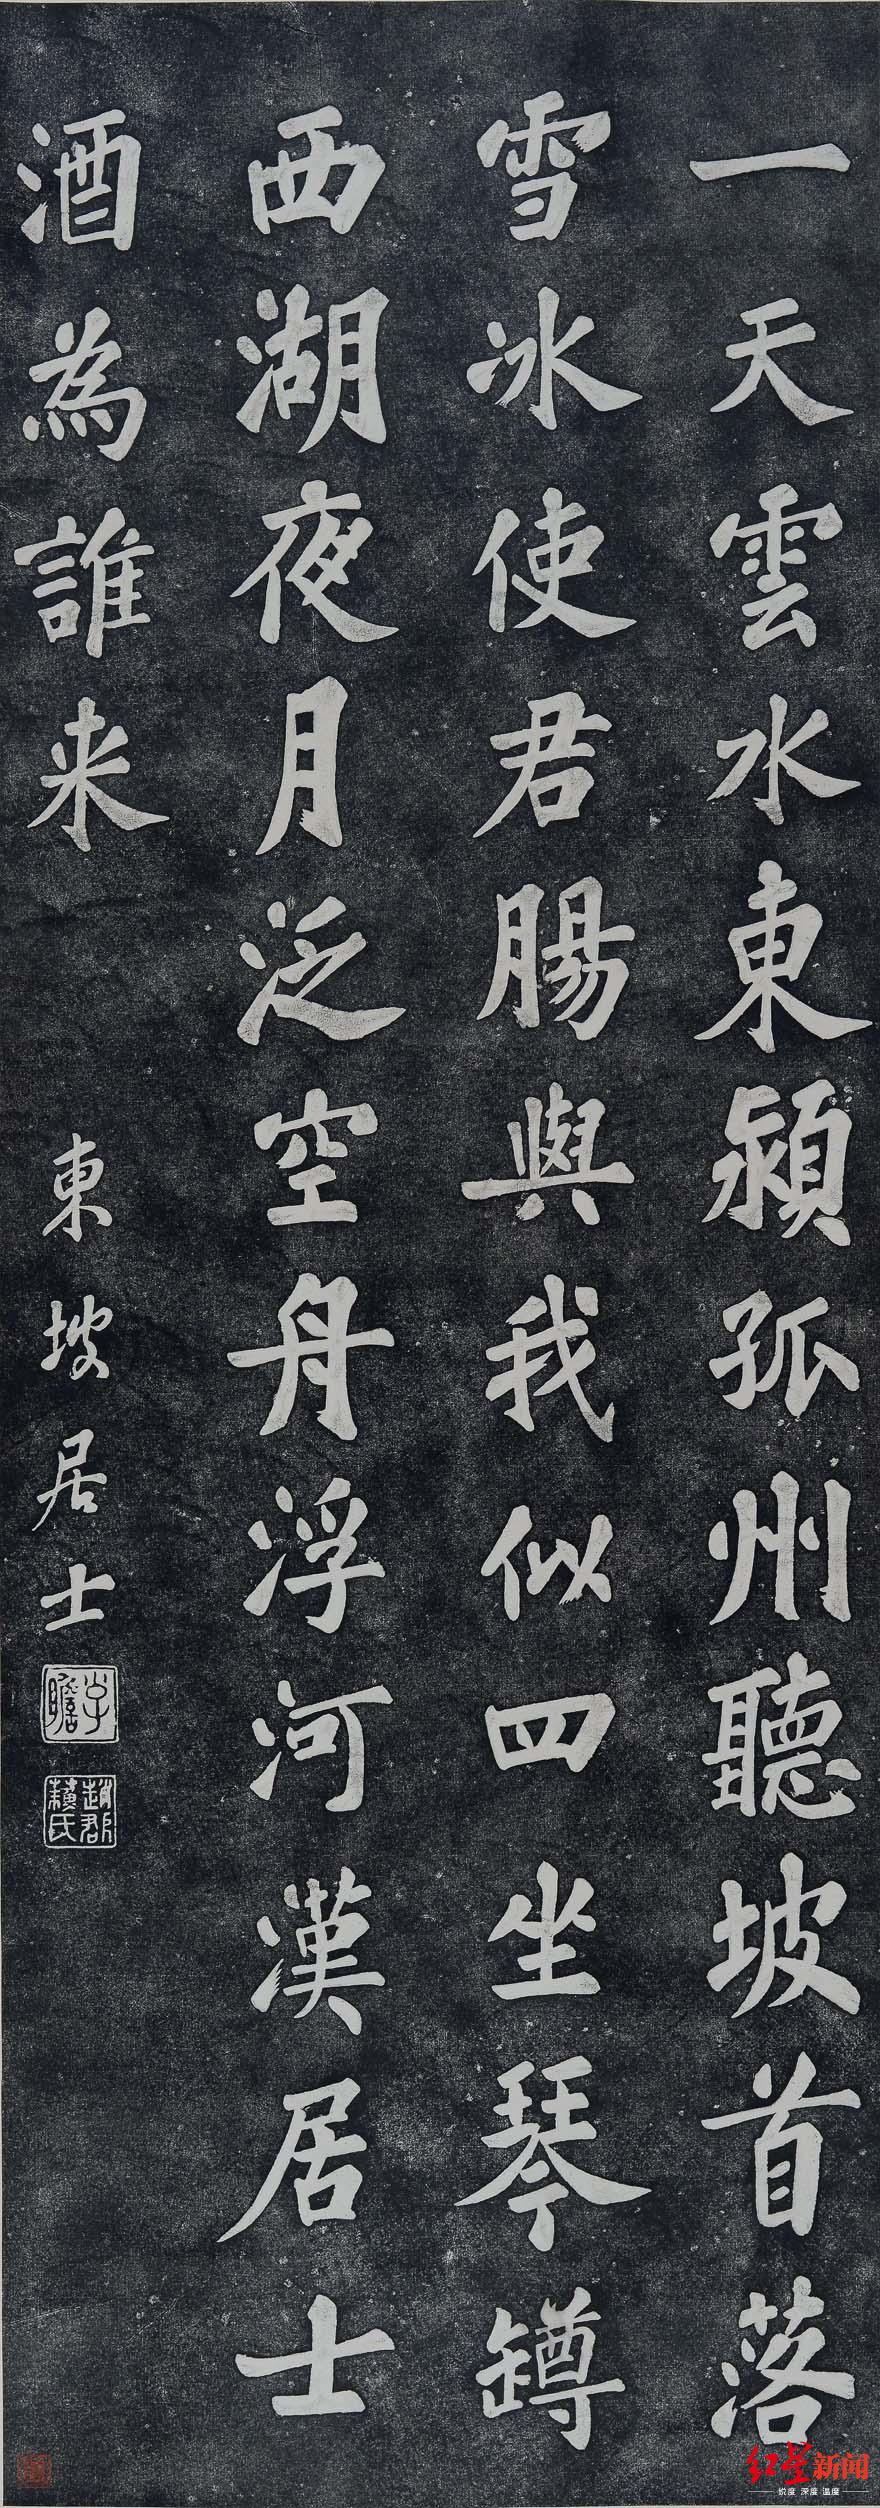 一天雲水東潁孤州聽坡首落
雪冰使君腸與我似四坐琴罇
西湖夜月泛空舟浮河漢居士
酒為誰来
東坡居士
子瞻
趙郡蘇氏
红星新闻
锐度 深度 温度